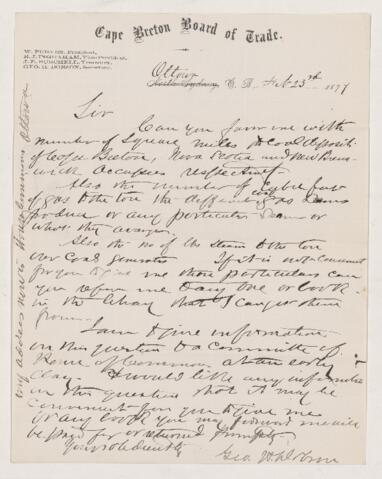 Cape Breton Board of Trade.
Ottawa
C. B. Feb 23rd 1877
Sir
Can you favor me with
number of Square miles the coal deposits
of Cape Breton, Nova Scotia and New Bruns-
wick Occupies respectively.
Also the number of cubic feet
of gas to the ton the different coal seams
produce or any particular Seam or
what the average.
Also the no of lbs Steam to the ton
our Coal generates. If it is not convenient
for you to give me those particulars can
you refer me to any one or book
in the library that I can get them
from.
I am to give information
on this question to a Committee of
House of Commons at an early
day. I would like any information
in this question that it may be
convenient for you to give me
or any book you may forward me will
be paid for or returned promptly.
Yours obediently
Geo. W. Dobson
my address now is House Commons Ottawa